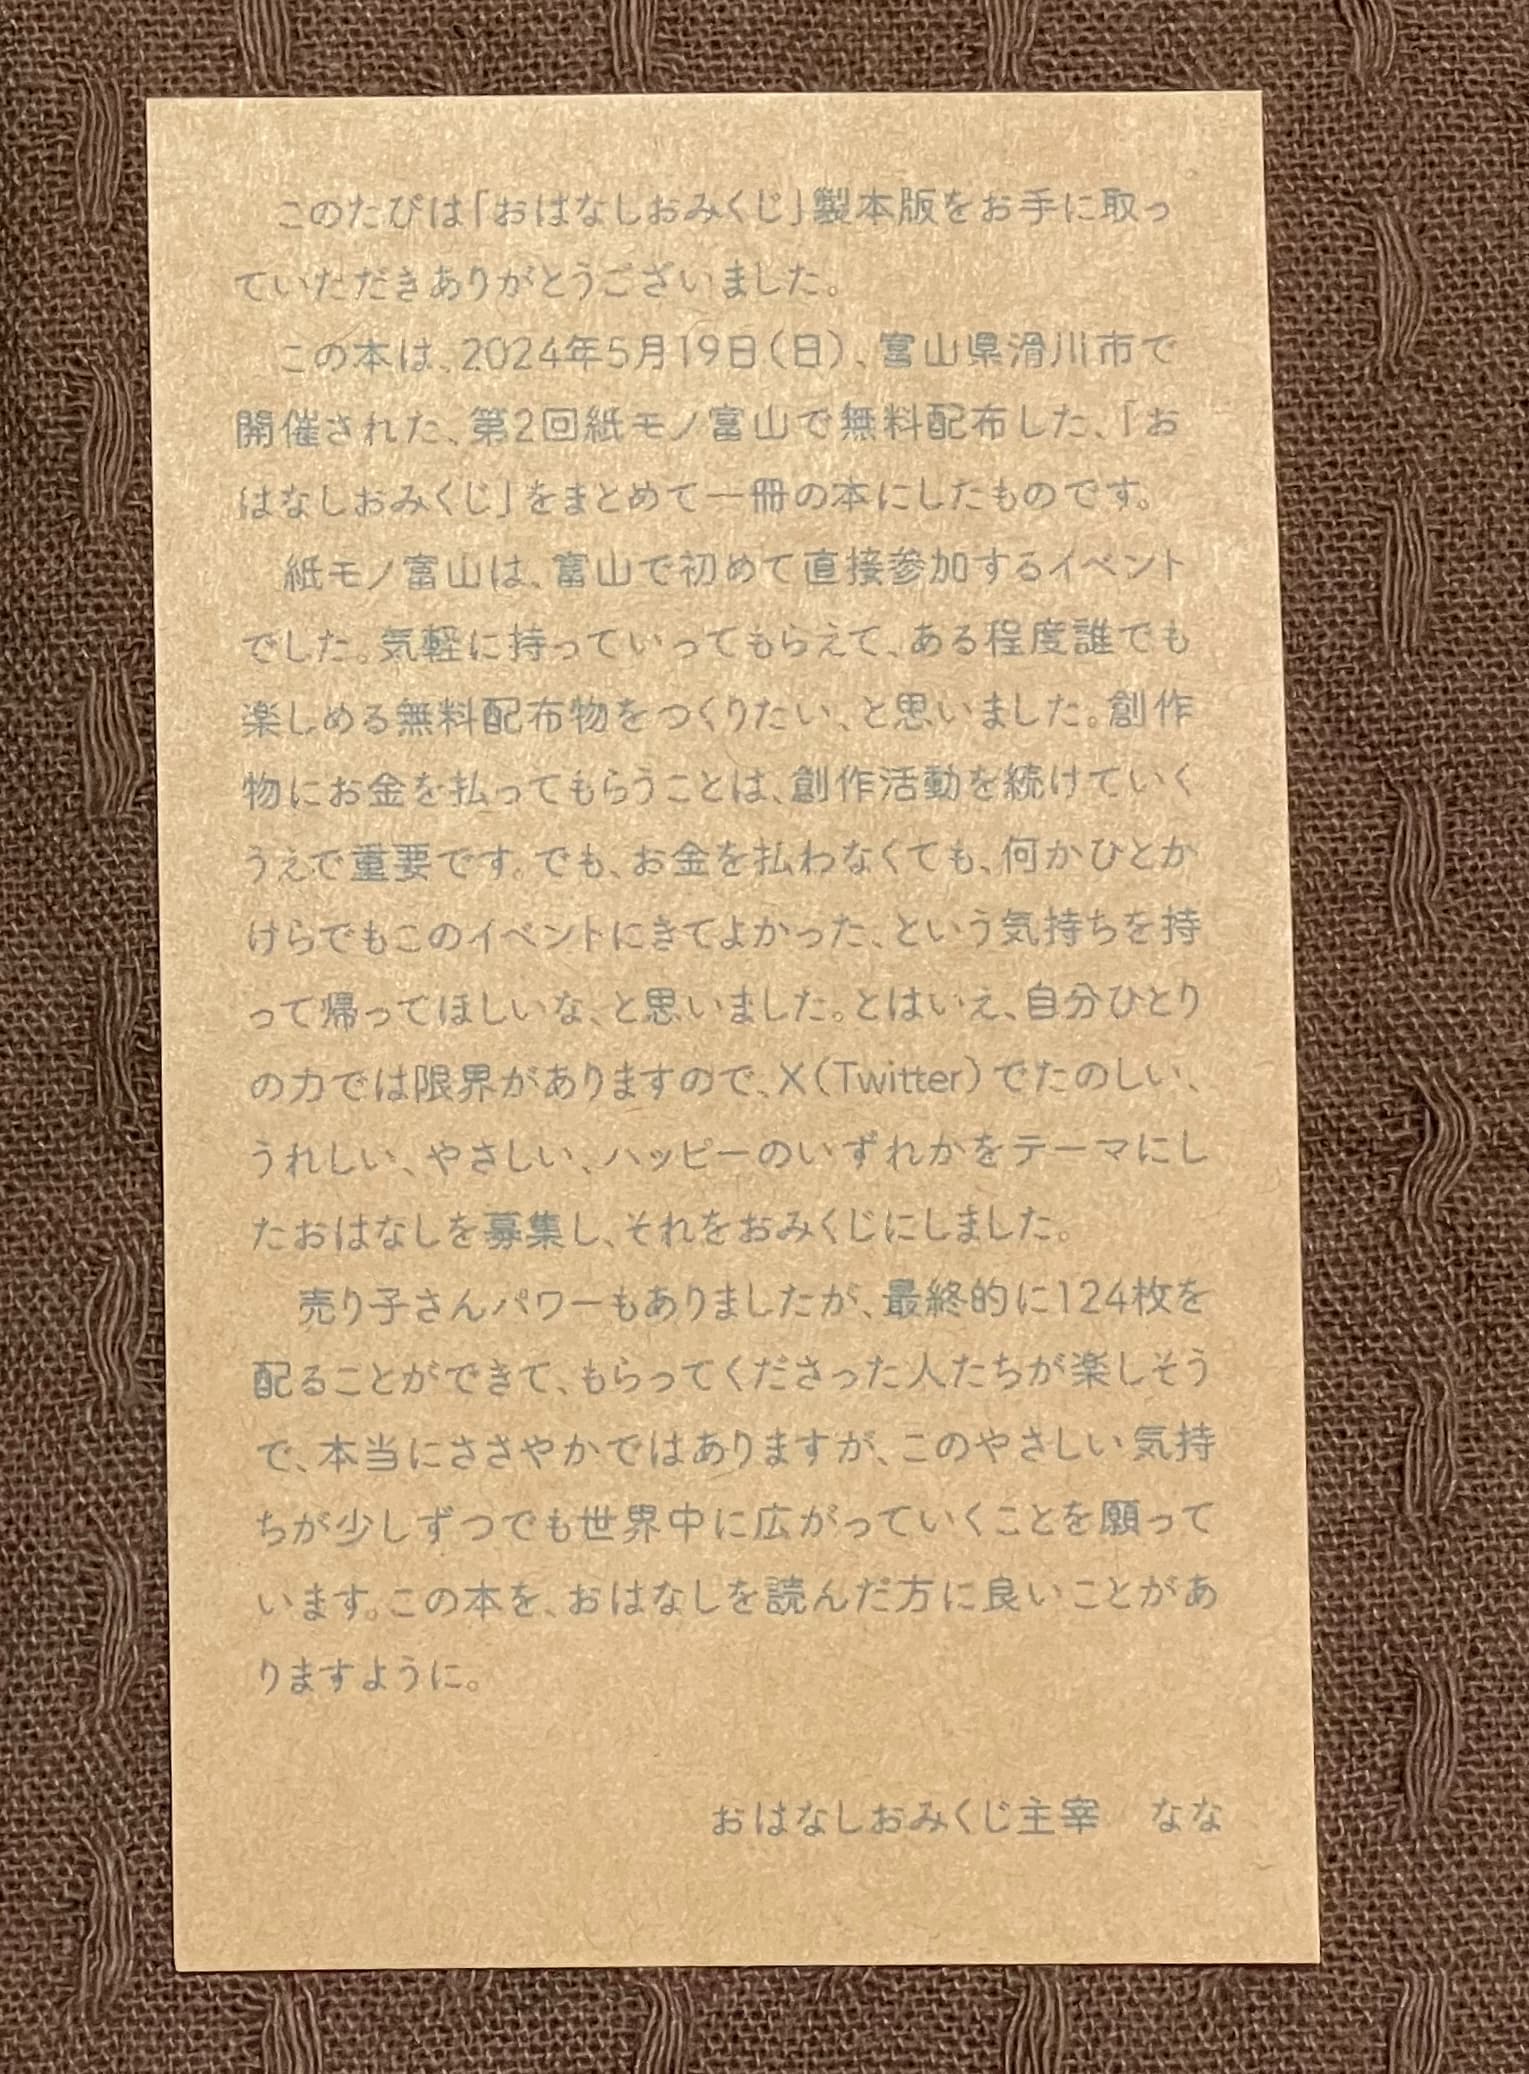 このたびは「おはなしおみくじ」製本版をお手に取っ
ていただきありがとうございました。
この本は、2024年5月19日(日)、富山県滑川市で
開催された、第2回紙モノ富山で無料配布した、「お
はなしおみくじ」をまとめて一冊の本にしたものです。
紙モノ富山は、富山で初めて直接参加するイベント
でした。気軽に持っていってもらえて、ある程度誰でも
楽しめる無料配布物をつくりたい、と思いました。創作
物にお金を払ってもらうことは、創作活動を続けていく
うえで重要です。でも、お金を払わなくても、何かひとか
けらでもこのイベントにきてよかった、という気持ちを持
って帰ってほしいな、と思いました。とはいえ、自分ひとり
の力では限界がありますので、X(Twitter)でたのしい、
うれしい、やさしい、ハッピーのいずれかをテーマにし
たおはなしを募集し、それをおみくじにしました。
売り子さんパワーもありましたが、最終的に124枚を
配ることができて、もらってくださった人たちが楽しそう
で、本当にささやかではありますが、このやさしい気持
ちが少しずつでも世界中に広がっていくことを願って
います。この本を、おはなしを読んだ方に良いことがあ
りますように。
おはなしおみくじ主宰　なな